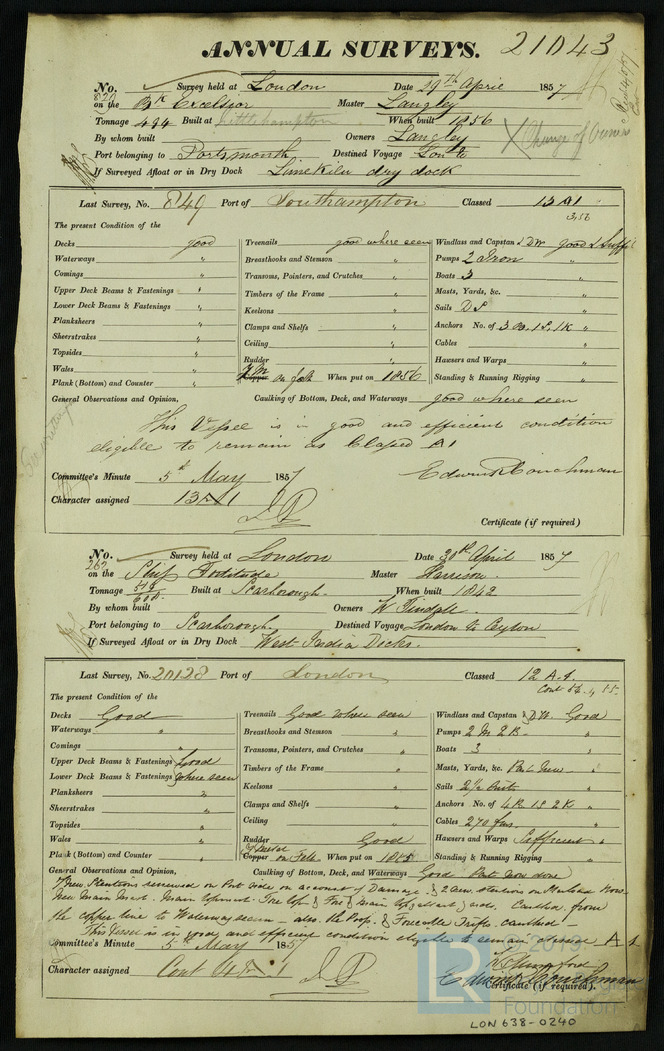 ANNUAL SURVEYS. 21043
No. 820 Survey held at London Date 29th April 1857
on the Br Excelsior Master Langley
Tonnage 494 Built at Littlehampton When built 1856
By whom built Owners Langley X Change of Owners
Port belonging to Portsmouth Destined Voyage Lon to
If Surveyed Afloat or in Dry Dock Limekiln dry dock
Last Survey, No. 849 Port of Southampton Classed 13 A1
3,56
The present Condition of the
Decks good Treenails good where seen Windlass and Capstan & DW good & Suffi
Waterways " Breasthooks and Stemson " Pumps 2 Iron "
Comings " Transoms, Pointers, and Crutches " Boats 3 "
Upper Deck Beams & Fastenings " Timbers of the Frame " Masts, Yards, &c. "
Lower Deck Beams & Fastenings " Keelsons " Sails DS "
Planksheers " Clamps and Shelfs " Anchors No. of 3 B. 1S. 1K "
Sheerstrakes " Ceiling " Cables "
Topsides " Rudder " Hawsers and Warps "
Wales " Y M Copper on felt When put on 1856 Standing & Running Rigging "
Plank (Bottom) and Counter "
General Observations and Opinion, Caulking of Bottom, Deck, and Waterways good where seen
This Vessel is in good and efficient condition
eligible to remain as Classed A1
Committee's Minute 5th May 1857 Edwin Couchman
Character assigned 13 A1
Certificate (if required)
No. 262 Survey held at London Date 30th April 1857
on the Ship Fortitude Master Harrison
Tonnage Built at Scarborough When built 1842
By whom built Owners W Tindall
Port belonging to Scarborough Destined Voyage London to Ceylon
If Surveyed Afloat or in Dry Dock West India Docks
Last Survey, No. 20128 Port of London Classed 12 A.1.
Cont 54. 4 55.
The present Condition of the
Decks Good Treenails Good where seen Windlass and Capstan & D.W. Good
Waterways " Breasthooks and Stemson " Pumps 2 M 2 B "
Comings " Transoms, Pointers, and Crutches " Boats 3 "
Upper Deck Beams & Fastenings Good Timbers of the Frame " Masts, Yards, &c. Part New "
Lower Deck Beams & Fastenings where seen Keelsons " Sails 2½ Suits "
Planksheers " Clamps and Shelfs " Anchors No. of 4 B 1S 2K "
Sheerstrakes " Ceiling " Cables 270 fms "
Topsides " Rudder Good Hawsers and Warps Sufficient "
Wales " Y Metal Copper on Felt When put on Standing & Running Rigging "
Plank (Bottom) and Counter "
General Observations and Opinion, Caulking of Bottom, Deck, and Waterways Good Part now done
New Stantions renewed on Port side on account of Damage & 2 new stantions on Starboard
New Main Mast. Main topmast. Fore top & Fore & main Caulked from
the copper line to Waterway seam also the Poop & Forecastle caulked
This Vessel is in good and efficient condition eligible to remain classed A 1
Committee's Minute 5th May 1857
Edwin Couchman
Character assigned Cont 4 A 1
Certificate (if required).
LR
Foundation
LON 638-0240